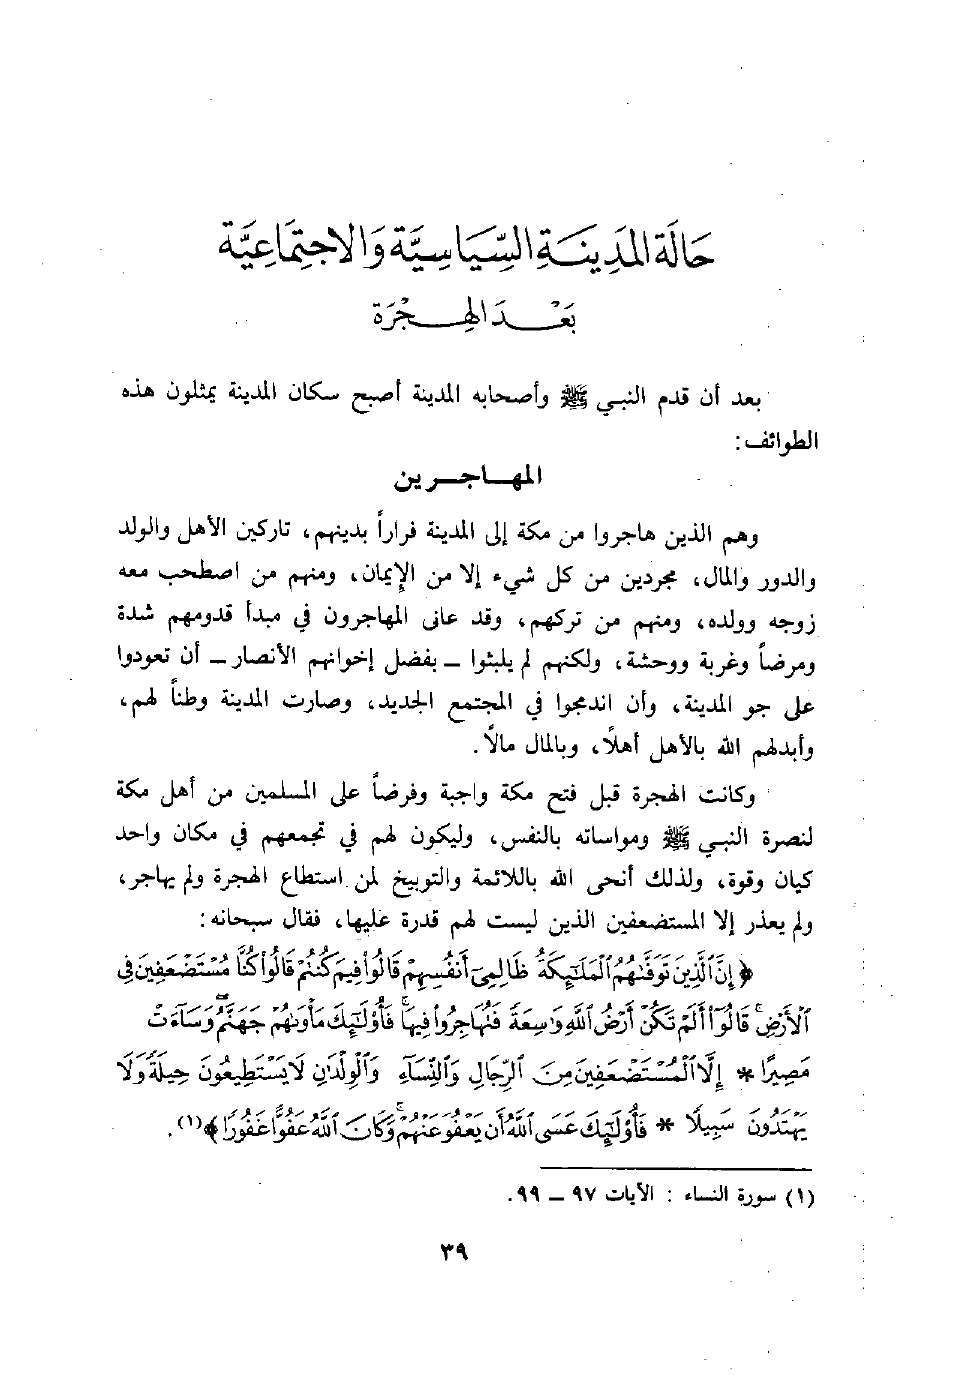 حَالَة المَدِينَة السِّيَاسِيَّة وَالاجْتِمَاعِيَّة
بَعْد الهِجْرَة
بعد أن قدم النبي ﷺ وأصحابه المدينة أصبح سكان المدينة يمثلون هذه
الطوائف:
المهاجرين
وهم الذين هاجروا من مكة إلى المدينة فراراً بدينهم، تاركين الأهل والولد
والدور والمال، مجردين من كل شيء إلا من الإيمان، ومنهم من اصطحب معه
زوجه وولده، ومنهم من تركهم، وقد عانى المهاجرون في مبدأ قدومهم شدة
ومرضاً وغربة ووحشة، ولكنهم لم يلبثوا ــ بفضل إخوانهم الأنصار ــ أن تعودوا
على جو المدينة، وأن اندمجوا في المجتمع الجديد، وصارت المدينة وطناً لهم،
وأبدلهم الله بالأهل أهلاً، وبالمال مالاً.
وكانت الهجرة قبل فتح مكة واجبة وفرضاً على المسلمين من أهل مكة
لنصرة النبي ﷺ ومواساته بالنفس، وليكون لهم في تجمعهم في مكان واحد
كيان وقوة، ولذلك أنحى الله باللائمة والتوبيخ لمن استطاع الهجرة ولم يهاجر،
ولم يعذر إلا المستضعفين الذين ليست لهم قدرة عليها، فقال سبحانه:
﴿ إِنَّ ٱلَّذِينَ تَوَفَّىٰهُمُ ٱلْمَلَـٰٓئِكَةُ ظَالِمِىٓ أَنفُسِهِمْ قَالُوا۟ فِيمَ كُنتُمْ قَالُوا۟ كُنَّا مُسْتَضْعَفِينَ فِى
ٱلْأَرْضِ ۚ قَالُوٓا۟ أَلَمْ تَكُنْ أَرْضُ ٱللَّهِ وَٰسِعَةً فَتُهَاجِرُوا۟ فِيهَا ۚ فَأُو۟لَـٰٓئِكَ مَأْوَىٰهُمْ جَهَنَّمُ ۖ وَسَآءَتْ
مَصِيرًا * إِلَّا ٱلْمُسْتَضْعَفِينَ مِنَ ٱلرِّجَالِ وَٱلنِّسَآءِ وَٱلْوِلْدَٰنِ لَا يَسْتَطِيعُونَ حِيلَةً وَلَا
يَهْتَدُونَ سَبِيلًا * فَأُو۟لَـٰٓئِكَ عَسَى ٱللَّهُ أَن يَعْفُوَ عَنْهُمْ ۚ وَكَانَ ٱللَّهُ عَفُوًّا غَفُورًا ﴾(١).
(١) سورة النساء : الآيات ٩٧ ــ ٩٩.
٣٩